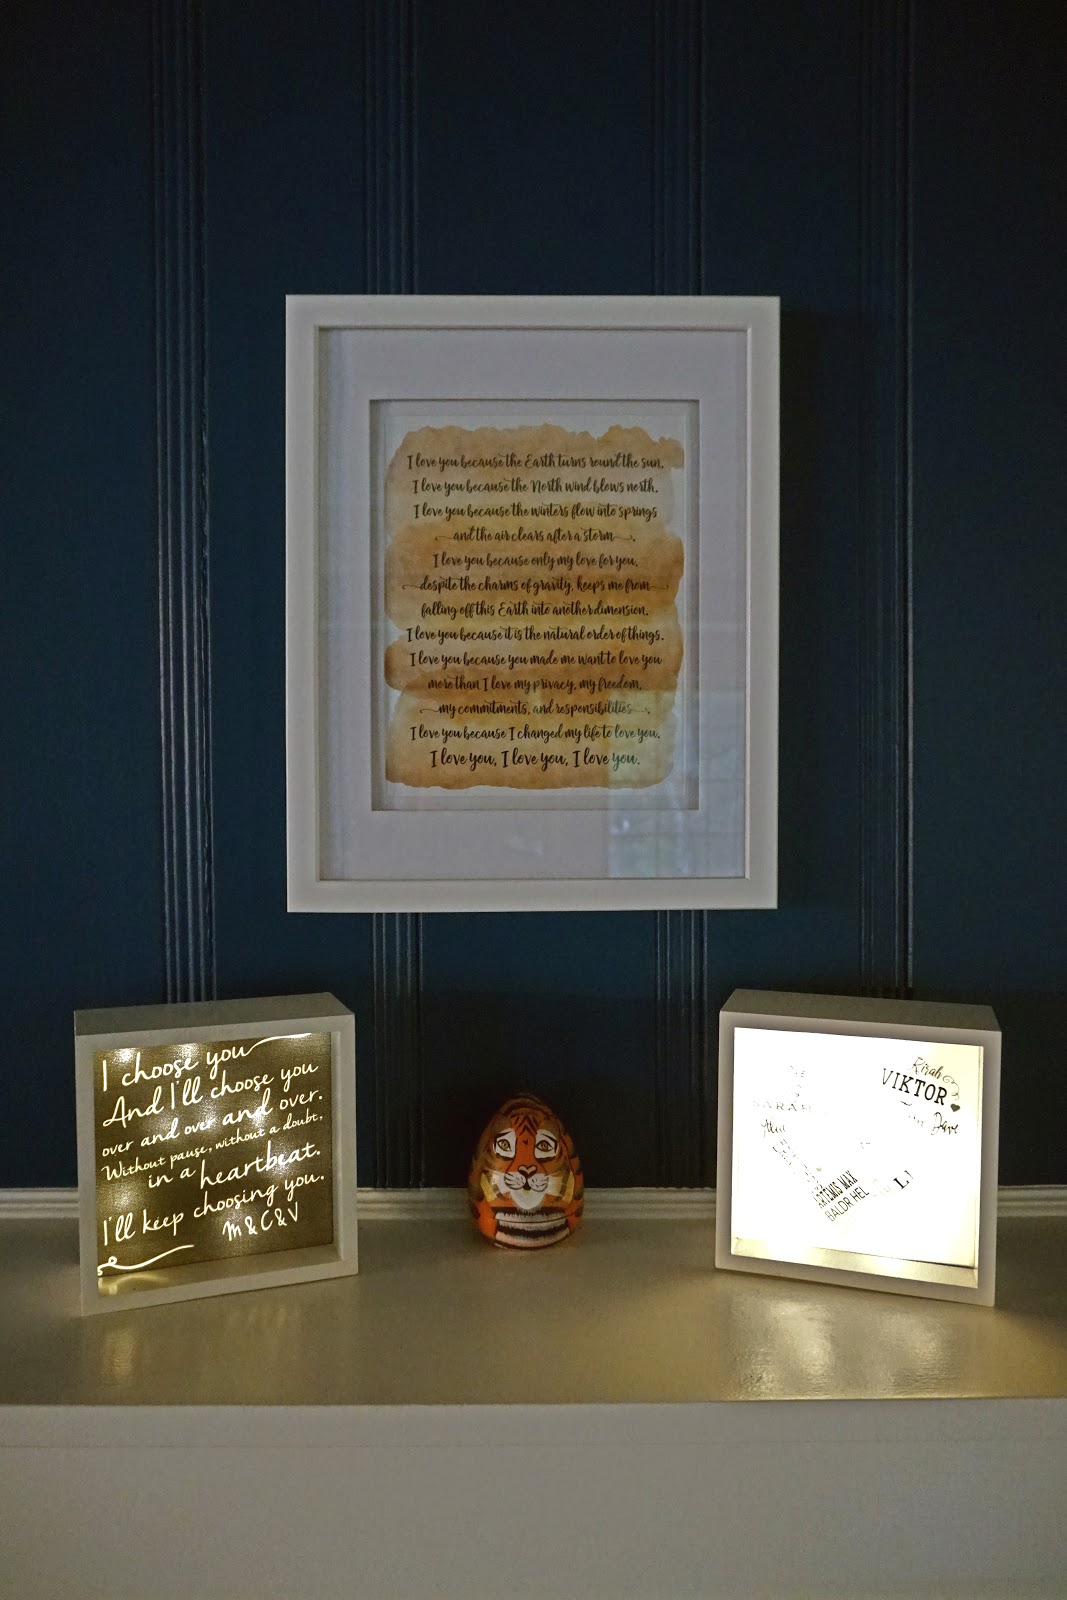 I love you because the Earth turns round the sun.
I love you because the North wind blows north.
I love you because the winters flow into springs
and the air clears after a storm.
I love you because only my love for you,
despite the charms of gravity, keeps me from
falling off this Earth into another dimension.
I love you because it is the natural order of things.
I love you because you made me want to love you
more than I love my privacy, my freedom,
my commitments, and responsibilities.
I love you because I changed my life to love you.
I love you, I love you, I love you.
I choose you
And I'll choose you
over and over and over.
Without pause, without a doubt,
in a heartbeat.
I'll keep choosing you.
M & C & V
Kirah
VIKTOR
SARAH
Dave
ARTEMIS WAX
BALDR HEL